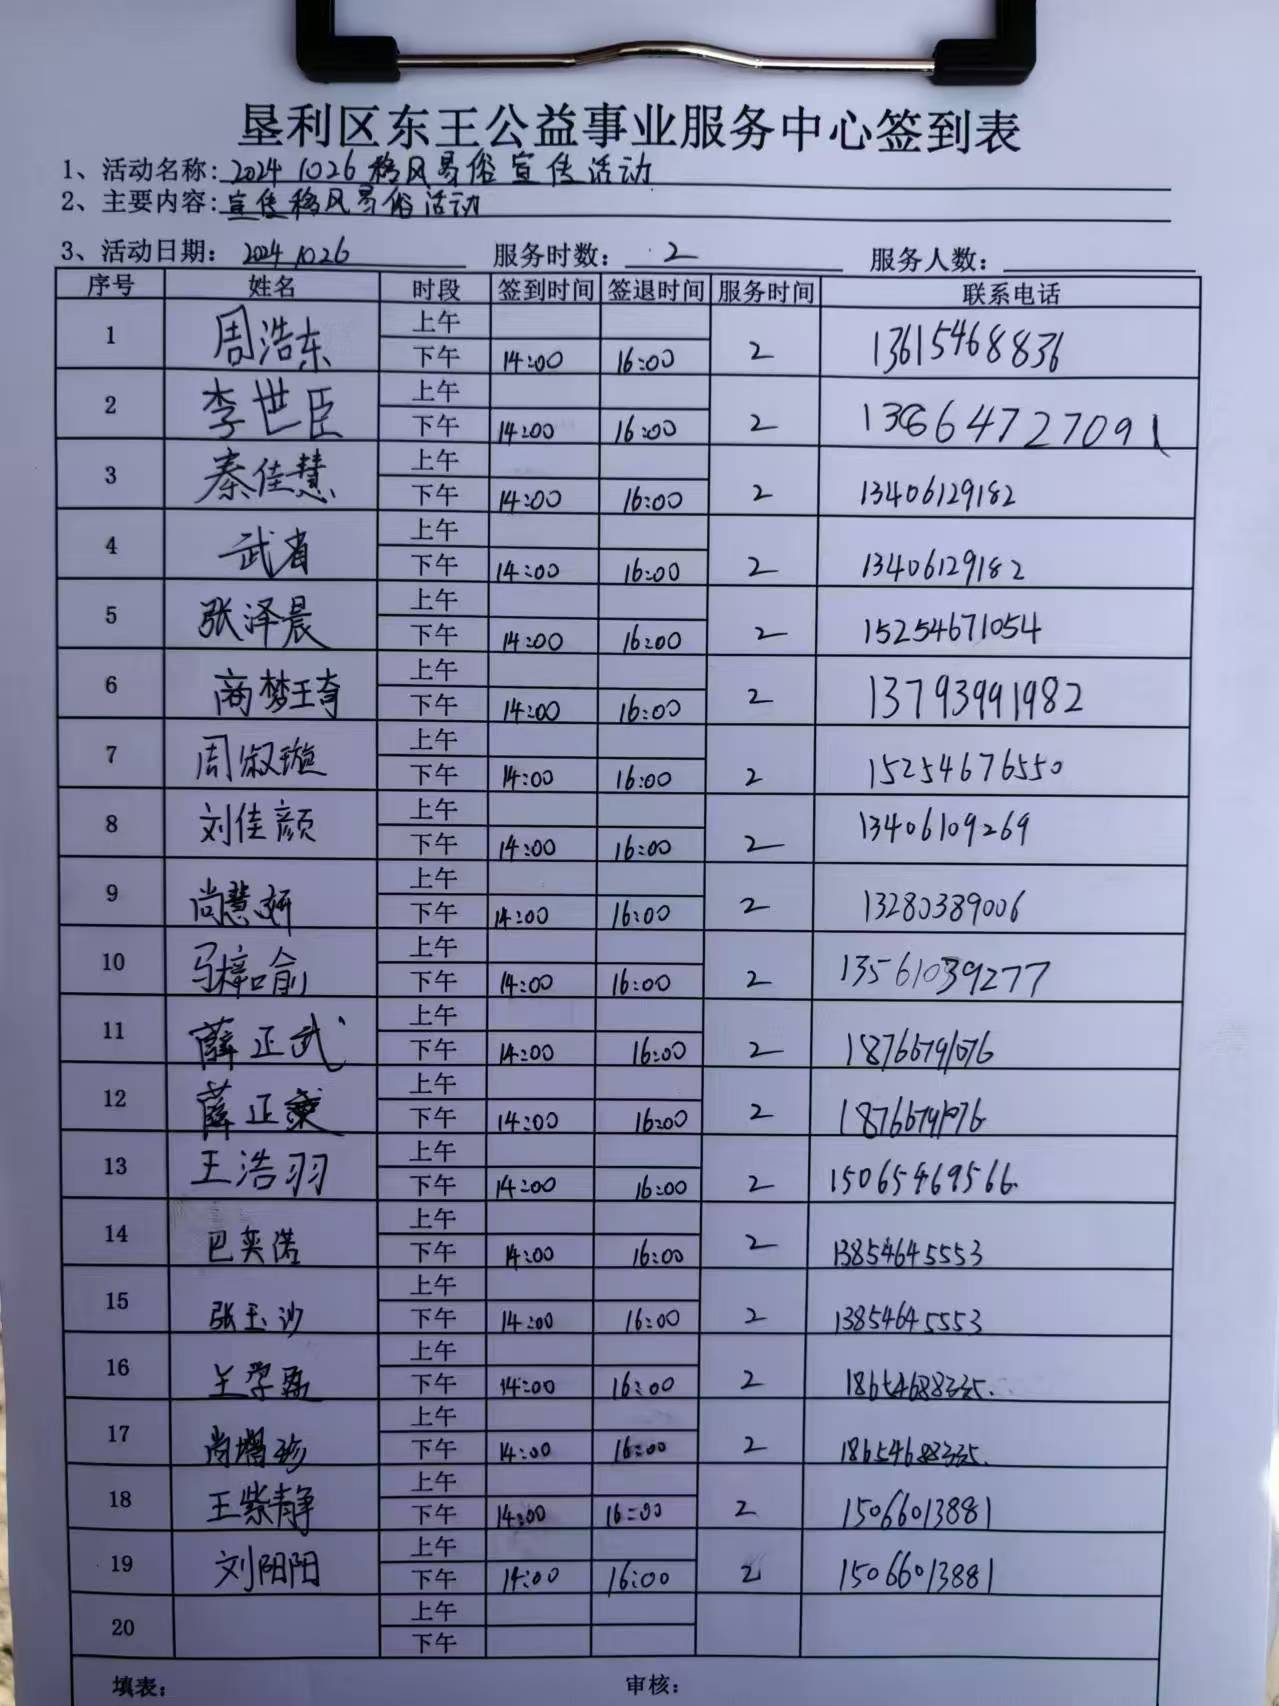 垦利区东王公益事业服务中心签到表
1、活动名称: 2024 1026 移风易俗宣传活动
2、主要内容: 宣传移风易俗活动
3、活动日期: 2024 1026 服务时数: 2 服务人数:
序号 姓名 时段 签到时间 签退时间 服务时间 联系电话
1 周浩东 上午
下午 14:00 16:00 2 13615468836
2 李世臣 上午
下午 14:00 16:00 2 13864727091
3 秦佳慧 上午
下午 14:00 16:00 2 13406129182
4 武省 上午
下午 14:00 16:00 2 13406129182
5 张泽晨 上午
下午 14:00 16:00 2 15254671054
6 商梦琦 上午
下午 14:00 16:00 2 13793991982
7 周淑璇 上午
下午 14:00 16:00 2 15254676550
8 刘佳颜 上午
下午 14:00 16:00 2 13406109269
9 尚慧妍 上午
下午 14:00 16:00 2 13280389006
10 马梓喻 上午
下午 14:00 16:00 2 13561039277
11 薛正武 上午
下午 14:00 16:00 2
12 薛正 上午
下午 14:00 16:00 2
13 王浩羽 上午
下午 14:00 16:00 2 15065469566
14 巴奕诺 上午
下午 14:00 16:00 2 13854645553
15 张玉沙 上午
下午 14:00 16:00 2 13854645553
16 王学磊 上午
下午 14:00 16:00 2 18654688335
17 尚增珍 上午
下午 14:00 16:00 2 18654688335
18 王紫静 上午
下午 14:00 16:00 2 15066013881
19 刘阳阳 上午
下午 14:00 16:00 2 15066013881
20 上午
下午
填表: 审核: